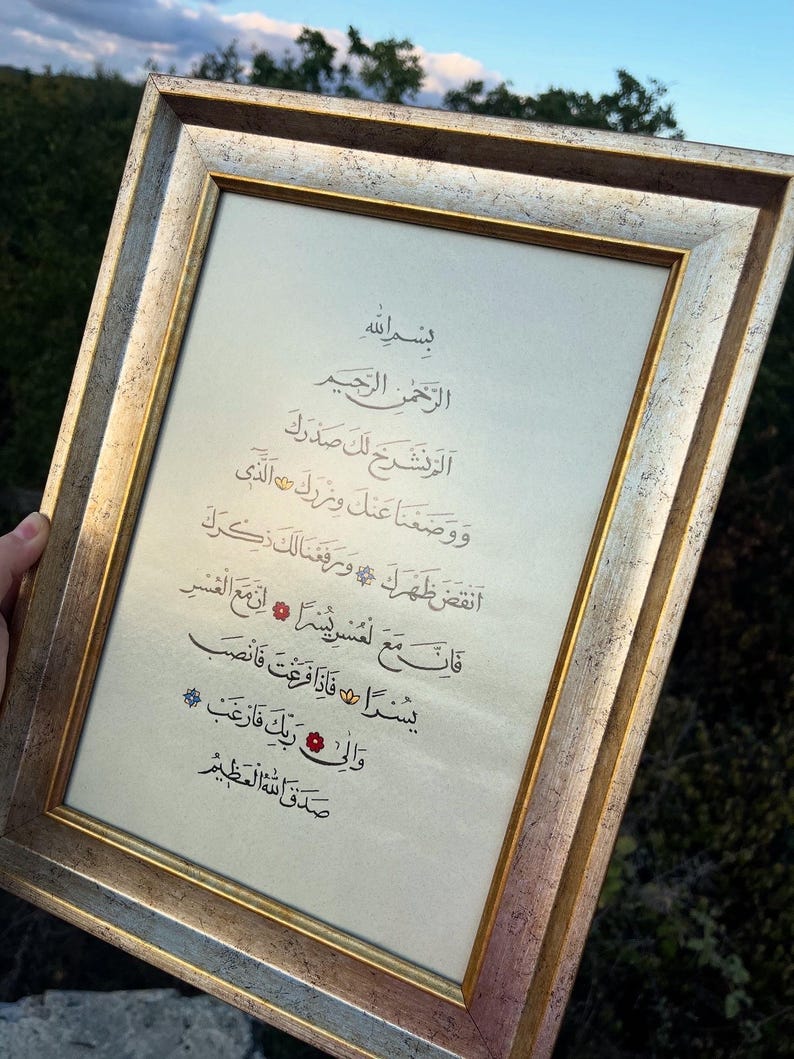 بِسْمِ اللّٰهِ
الرَّحْمٰنِ الرَّحٖيمِ
اَلَمْ نَشْرَحْ لَكَ صَدْرَكَ
وَوَضَعْنَا عَنْكَ وِزْرَكَ اَلَّذٖٓى
اَنْقَضَ ظَهْرَكَ وَرَفَعْنَا لَكَ ذِكْرَكَ
فَاِنَّ مَعَ لْعُسْرِ يُسْرًا اِنَّ مَعَ الْعُسْرِ
يُسْرًا فَاِذَا فَرَغْتَ فَانْصَبْ
وَاِلٰى رَبِّكَ فَارْغَبْ
صَدَقَ اللّٰهُ الْعَظٖيمُ